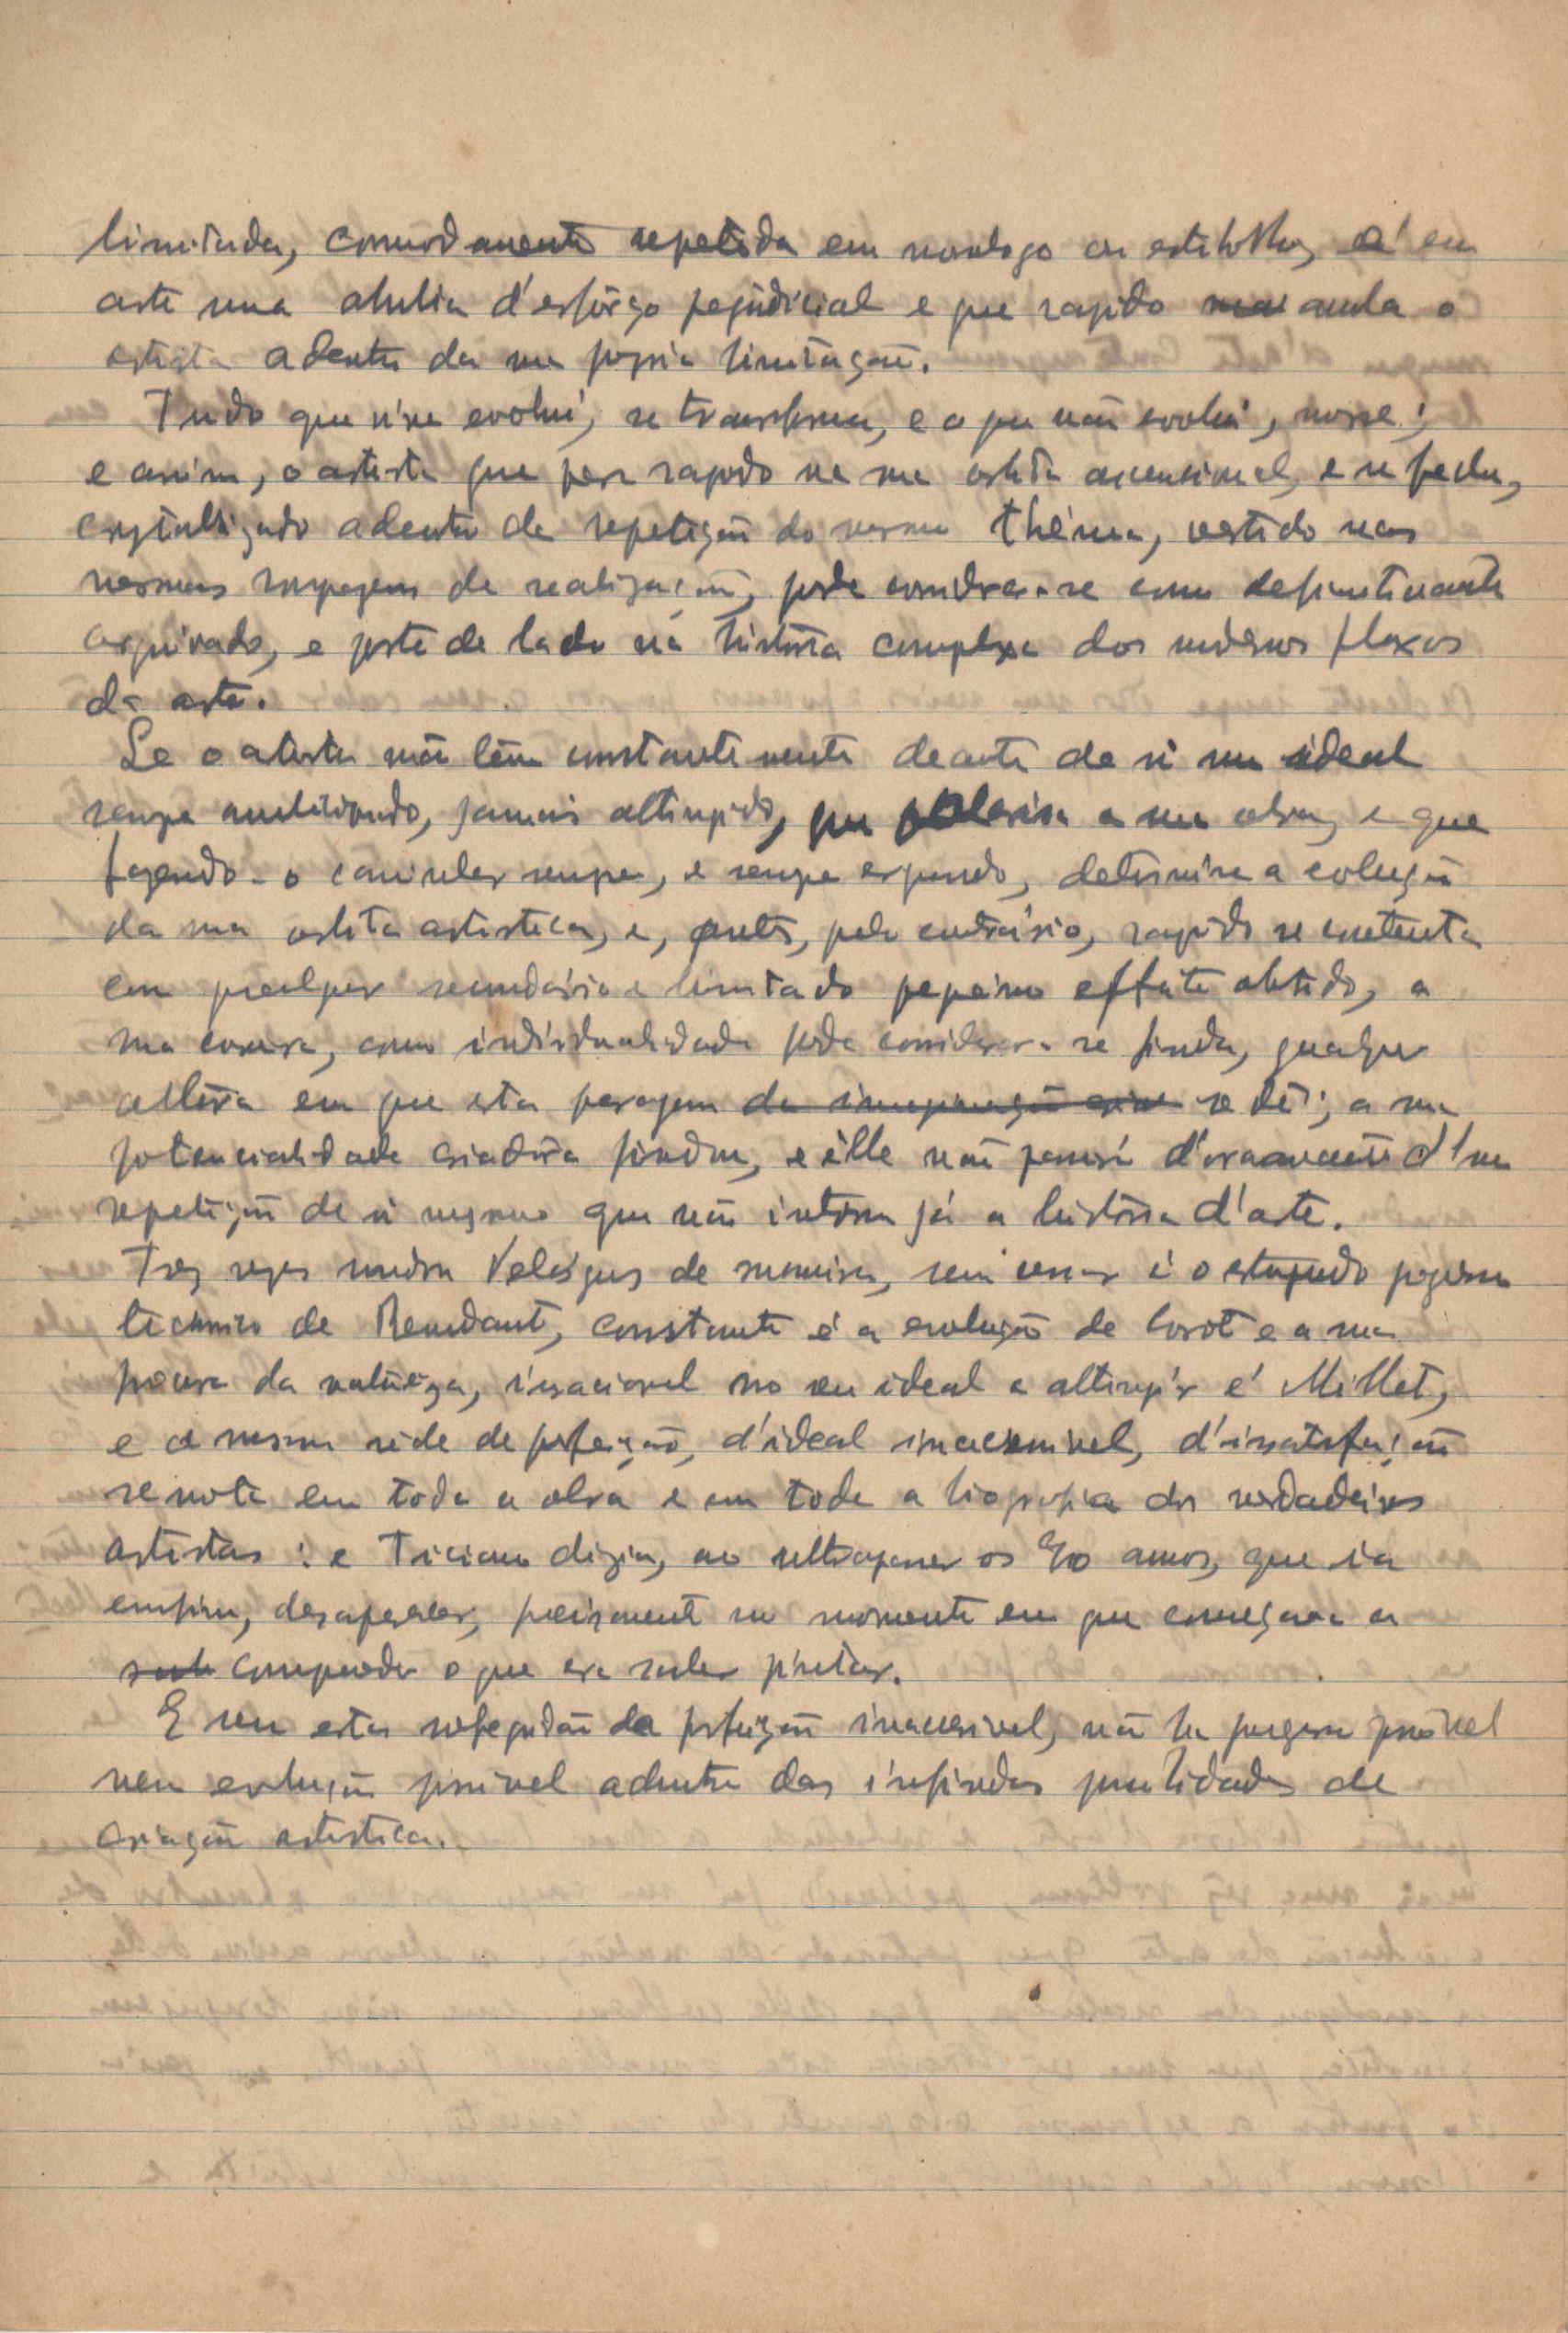 limitada, commodamente repetida em monologo ou estribilho, é em
arte uma abulia d'esfôrço prejudicial e que rapido anula o
artista adentro da sua propria limitação.
Tudo que vive evolui, se transforma, e o que não evolui, morre;
e assim, o artista que para rapido na sua orbita ascensional, e se fecha,
crystallizado adentro da repetição do mesmo théma, vestido nas
mesmas roupagens de realização, pode considerar-se como definitivamente
arquivado, e posto de lado na história complexa dos diversos fluxos
da arte.
Se o artista não têm constantemente deante de si um ideal
sempre ambicionado, jamais attingido, que a sua obra, e que
fazendo-o caminhar sempre, e sempre erguendo, determine a evolução
da sua orbita artistica, e, antes, pelo contrário, rapido se contenta
em qualquer secundário e limitado pequeno effeito obtido, a
sua carreira, como individualidade pode considerar-se finda, qualquer
altura em que esta paragem da imaginação se dê; a sua
potencialidade criadôra findou, e êlle não passará d'ora avante d'uma
repetição de si mesmo que não intéressa já a história d'arte.
Trez vezes mudou Velásquez de maneira, sem cessar é o estupendo progresso
technico de Rembrandt, constante é a evolução de Corot e a sua
procura da natureza, insaciavel no seu ideal a attingir é Millet,
e a mesma sêde de perfeição, d'ideal inaccessivel, d'insatisfação
se nota em toda a obra e em toda a biografia dos verdadeiros
artistas: e Ticiano dizia, ao ultrapassar os 90 annos, que ia
emfim, desaparecer, precisamente no momento em que começava a
comprender o que era saber pintar.
E sem esta sofreguidão da perfeição inaccessivel, não ha progresso possivel
nem evolução possivel adentro das infindas qualidades de
criação artistica.